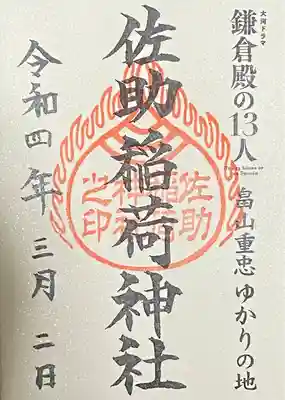 大河ドラマ
鎌倉殿の13人
畠山重忠 ゆかりの地
佐助稲荷神社
佐助
稲荷
神社
之印
令和四年 三月 二日